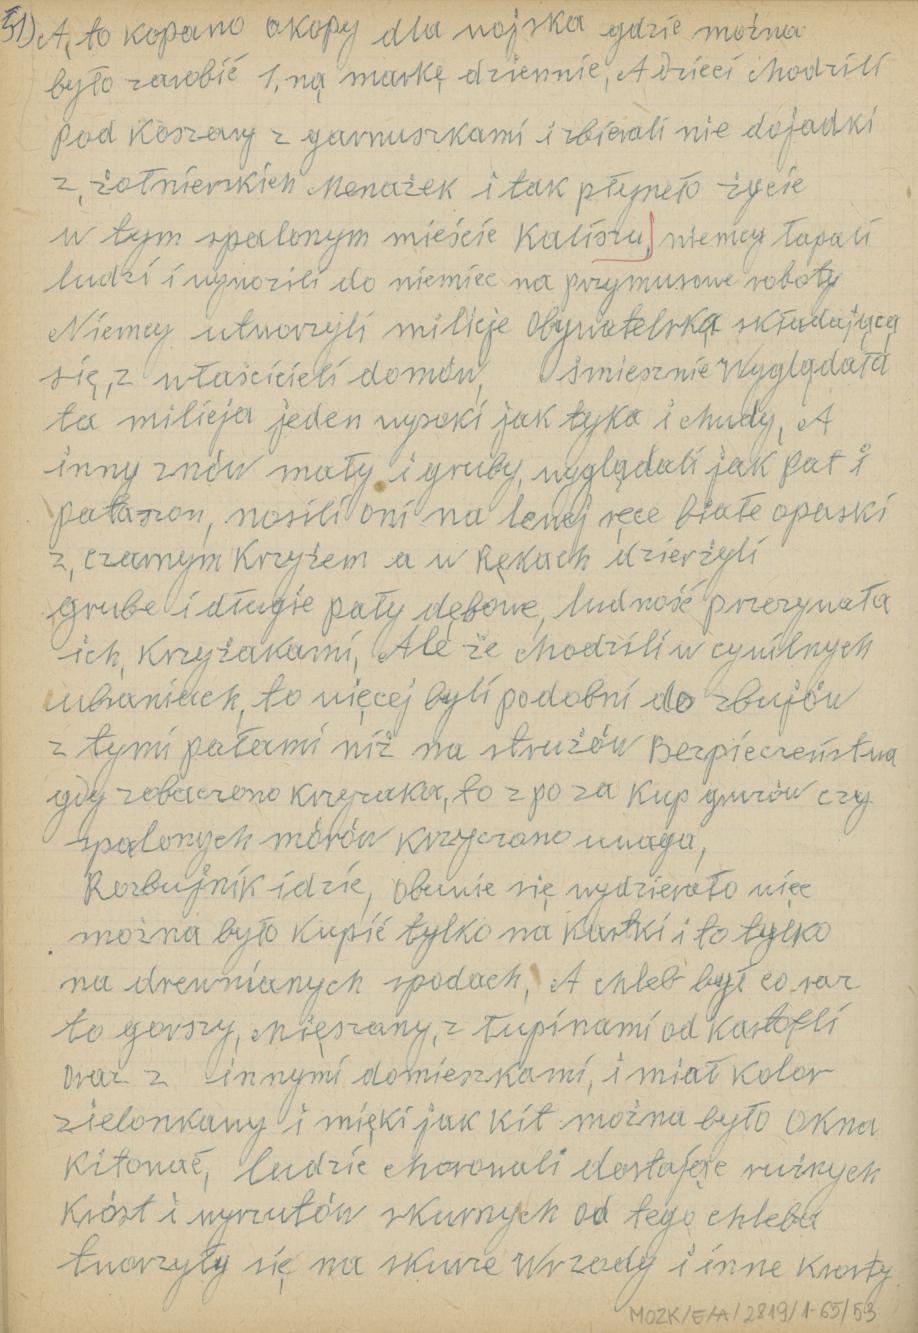 51) A, to kopano okopy dla wojska gdzie można
było zarobić 1,ną markę dziennie, A Dzieci chodzili
pod Koszary z garnuszkami i zbierali nie dojadki
z, żołnierzkich Menażek i tak płyneło życie
w tym spalonym mieście Kaliszu, niemcy łapali
ludzi i wywozili do niemiec na przymusowe roboty
Niemcy utworzyli milicje Obywatelską składającą
się, z właścicieli domów, śmiesznie Wyglądała
ta milicja jeden wysoki jak tyka i chudy, A
inny znów mały i gruby, wyglądali jak pat i
patazon, nosili oni na lewej ręce białe opaski
z, czarnym Krzyżem a w Rękach dzierżyli
grube i długie pały dębowe, ludność przezywała
ich, Krzyżakami, Ale że chodzili w cywilnych
ubraniach, to więcej byli podobni do zbujów
z tymi pałami niż na strużów Bezpieczeństwa
gdy zobaczono krzyzaka, to z po za Kup gruzów czy
spalonych mórów krzyczano uwaga,
Rozbujnik idzie, Obuwie się wydzierało więc
można było Kupić tylko na Kartki i to tylko
na drewnianych spodach, A chleb był co raz
to gorszy, Mięszany, z łupinami od kartofli
oraz z innymi domieszkami, i miał kolor
zielonkawy i mięki jak Kit można było Okna
Kitować, ludzie chorowali dostając rużnych
Króst i wyrzutów skurnych od tego chleba
tworzyły się na skurze Wrzody i inne krosty
MOZK/E/A/2819/1-65/53